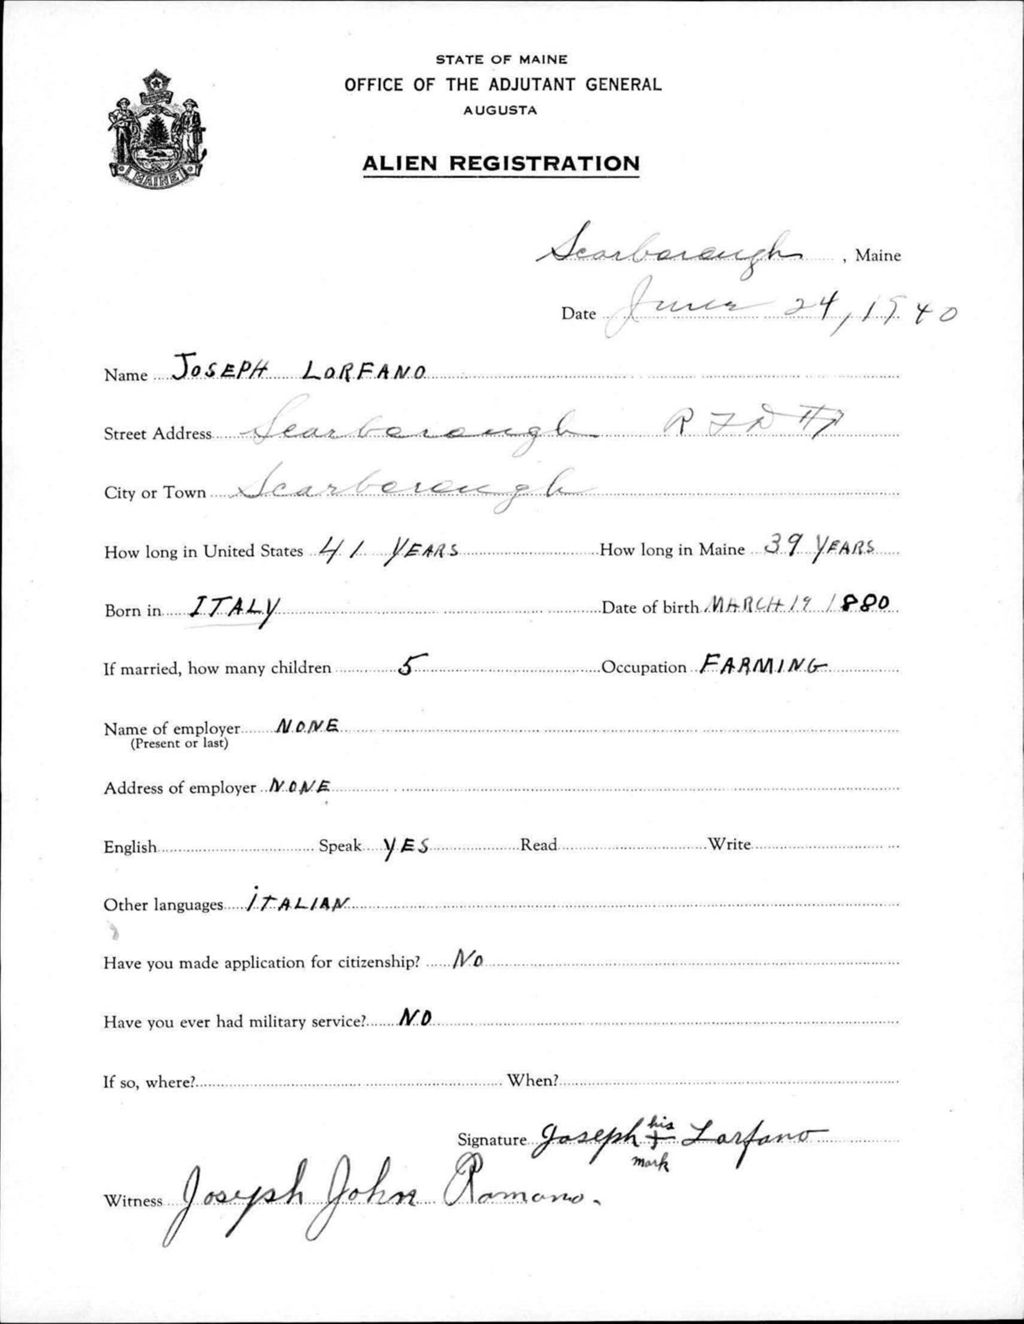 STATE OF MAINE
OFFICE OF THE ADJUTANT GENERAL
AUGUSTA
ALIEN REGISTRATION
MAINE
Scarborough, Maine
Date June 24, 1940
Name JOSEPH LORFANO
Street Address Scarborough RFD #
City or Town Scarborough
How long in United States 41 YEARS How long in Maine 39 YEARS
Born in ITALY Date of birth MARCH 19 1880
If married, how many children 5 Occupation FARMING
Name of employer NONE
(Present or last)
Address of employer NONE
English Speak YES Read Write
Other languages ITALIAN
Have you made application for citizenship? No
Have you ever had military service? NO
If so, where? When?
Signature Joseph his + mark Lorfano
Witness Joseph John Romano.